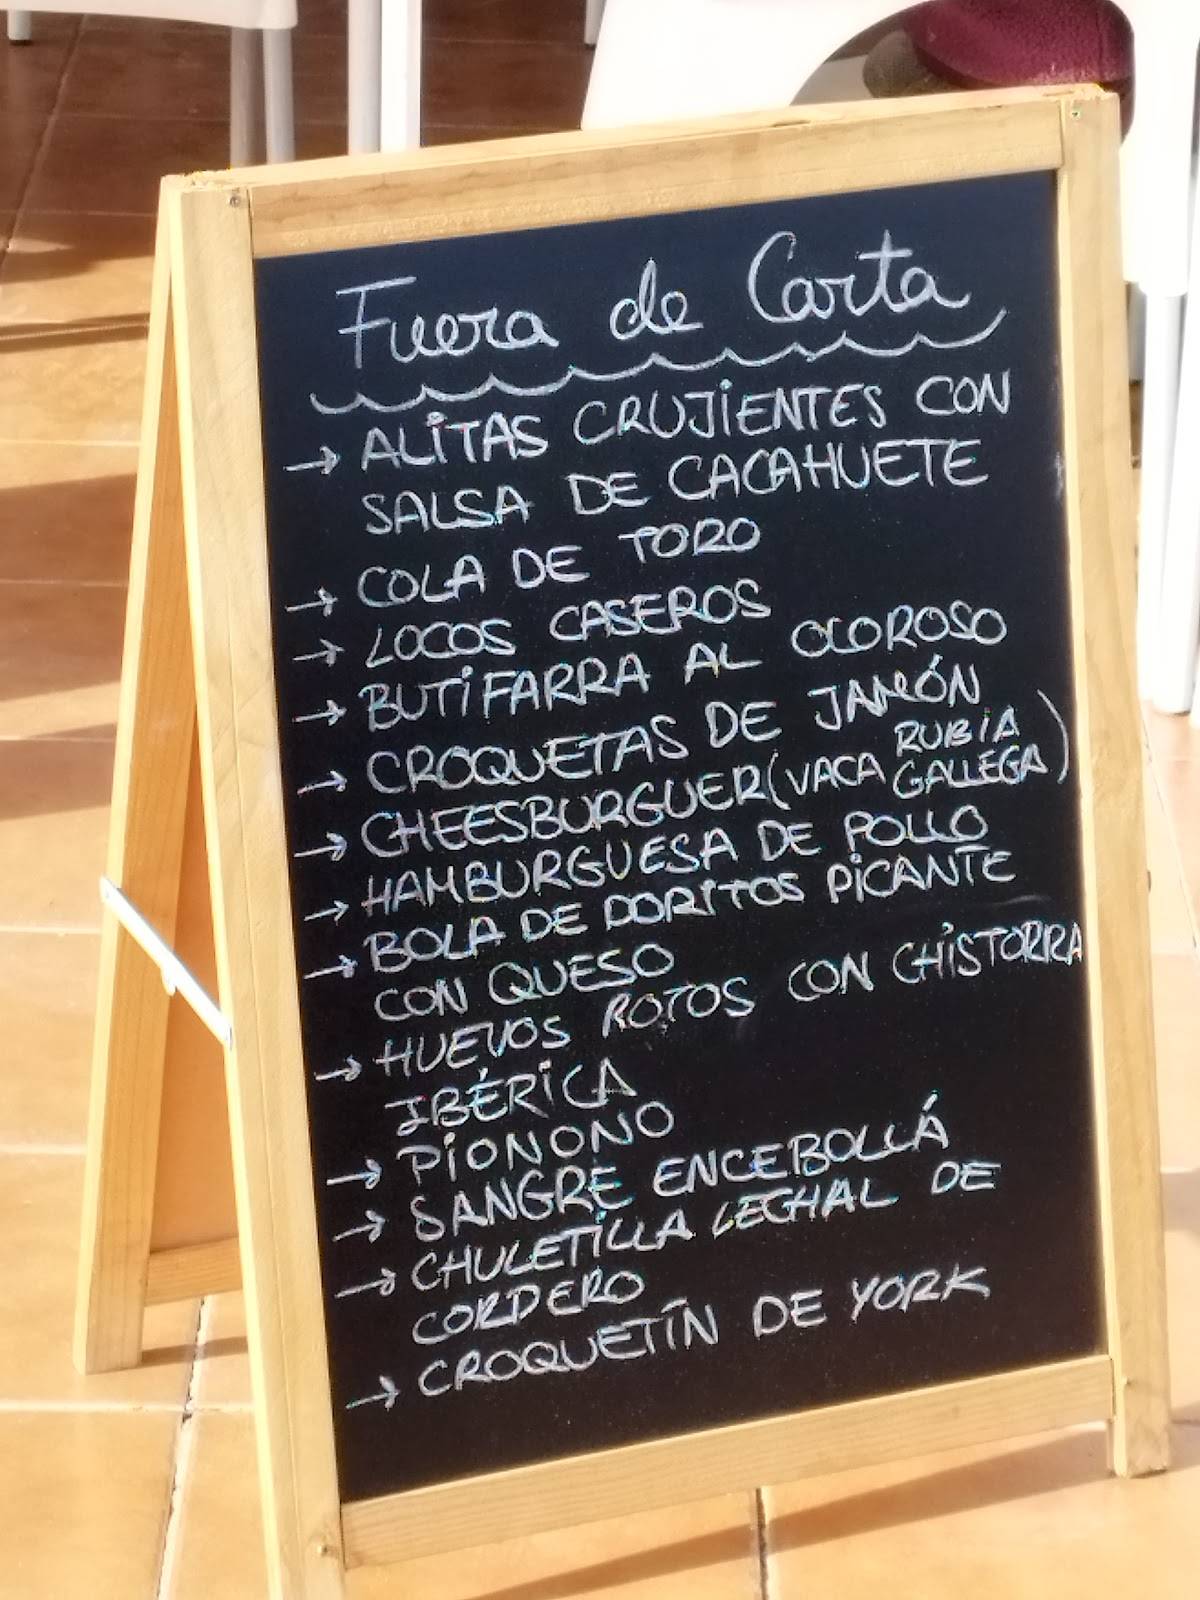 Fuera de Carta
→ ALITAS CRUJIENTES CON
SALSA DE CACAHUETE
→ COLA DE TORO
→ LOCOS CASEROS
→ BUTIFARRA AL OLOROSO
→ CROQUETAS DE JAMÓN
→ CHEESBURGUER (VACA RUBIA GALLEGA)
→ HAMBURGUESA DE POLLO
→ BOLA DE DORITOS PICANTE
CON QUESO
→ HUEVOS ROTOS CON CHISTORRA
IBÉRICA
→ PIONONO
→ SANGRE ENCEBOLLÁ
→ CHULETILLA LECHAL DE
CORDERO
→ CROQUETÍN DE YORK